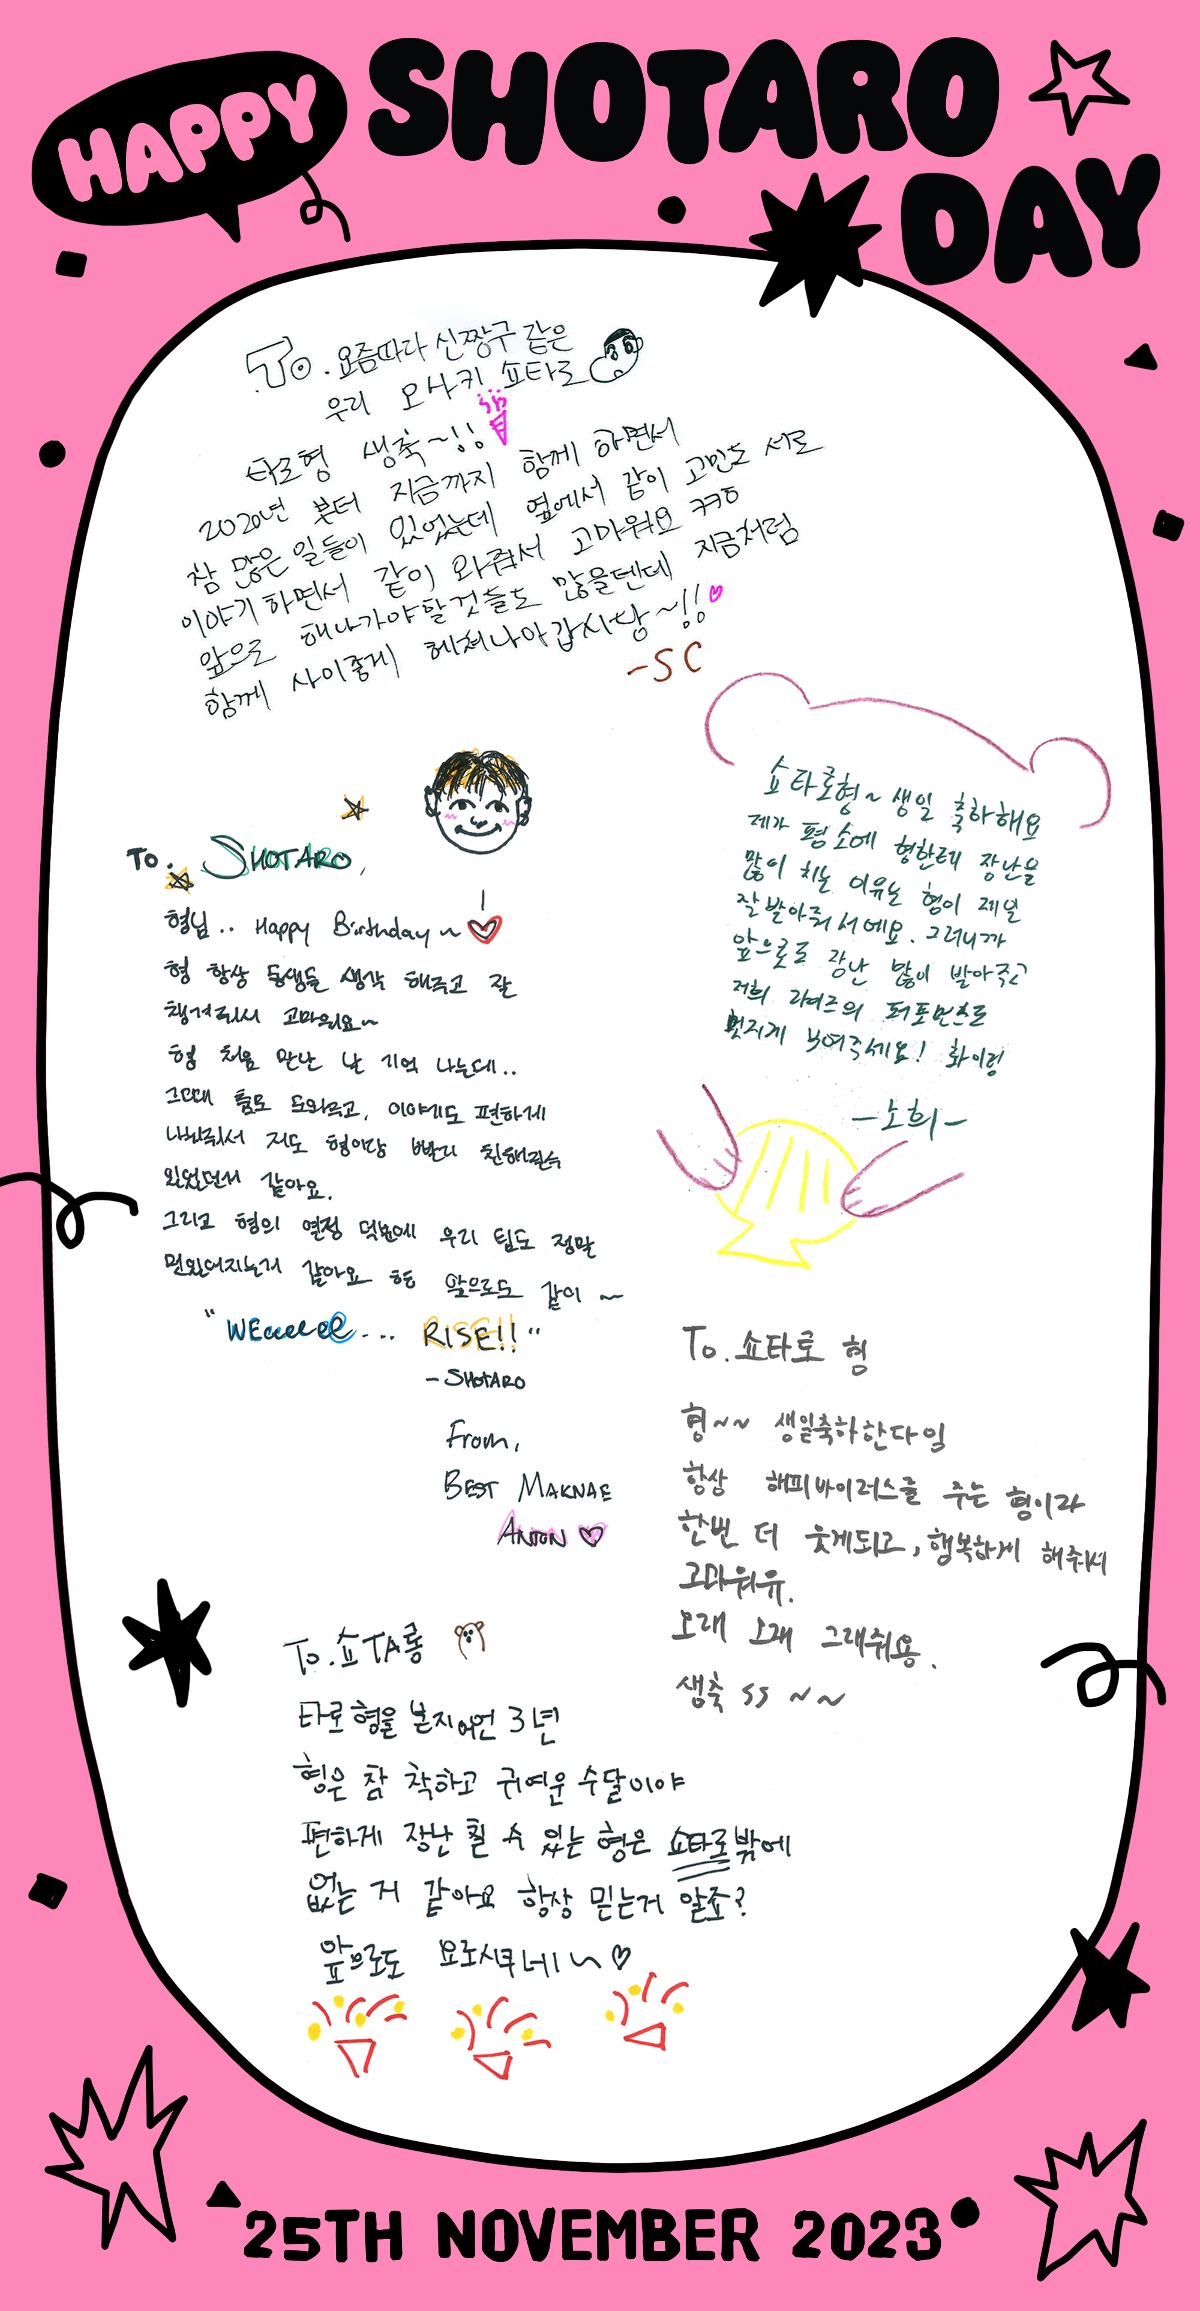 HAPPY SHOTARO
DAY
To. 요즘따라 신짱구 같은
우리 오사키 쇼타로
타로형 생축~!!
2020년 부터 지금까지 함께 하면서
참 많은 일들이 있었는데 옆에서 같이 고민도 서로
이야기 하면서 같이 와줘서 고마워요 ㅋㅋㅎ
앞으로 해나가야할것들도 많을텐데 지금처럼
함께 사이좋게 헤쳐나아갑시당~!!♡
-SC
쇼타로형~ 생일 축하해요
제가 평소에 형한테 장난을
많이 치는 이유는 형이 제일
잘 받아줘서에요. 그러니까
앞으로도 장난 많이 받아주고
저희 라이즈의 퍼포먼스도
멋지게 보여주세요! 화이팅
-소희-
To. SHOTARO,
형님.. Happy Birthday~♡
형 항상 동생들 생각 해주고 잘
챙겨줘서 고마워요~
형 처음 만난 날 기억 나는데..
그때 춤도 도와주고, 이야기도 편하게
나눠줘서 저도 형이랑 빨리 친해질수
있었던거 같아요.
그리고 형의 열정 덕분에 우리 팀도 정말
멋있어지는거 같아요 형 앞으로도 같이 ~
"WEeeeeee... RISE!!"
- SHOTARO
From,
BEST MAKNAE
ANTON ♡
To. 쇼타로 형
형~~ 생일축하한다잉
항상 해피바이러스를 주는 형이라
한번 더 웃게되고, 행복하게 해줘서
고마워유.
오래 오래 그래줘용.
생축 ㅅㅅ ~~
To. 쇼TA롱
타로 형을 본지 어언 3년
형은 참 착하고 귀여운 수달이야
편하게 장난 칠 수 있는 형은 쇼타로밖에
없는 거 같아요 항상 믿는거 알죠?
앞으로도 요로시쿠네~♡
25TH NOVEMBER 2023